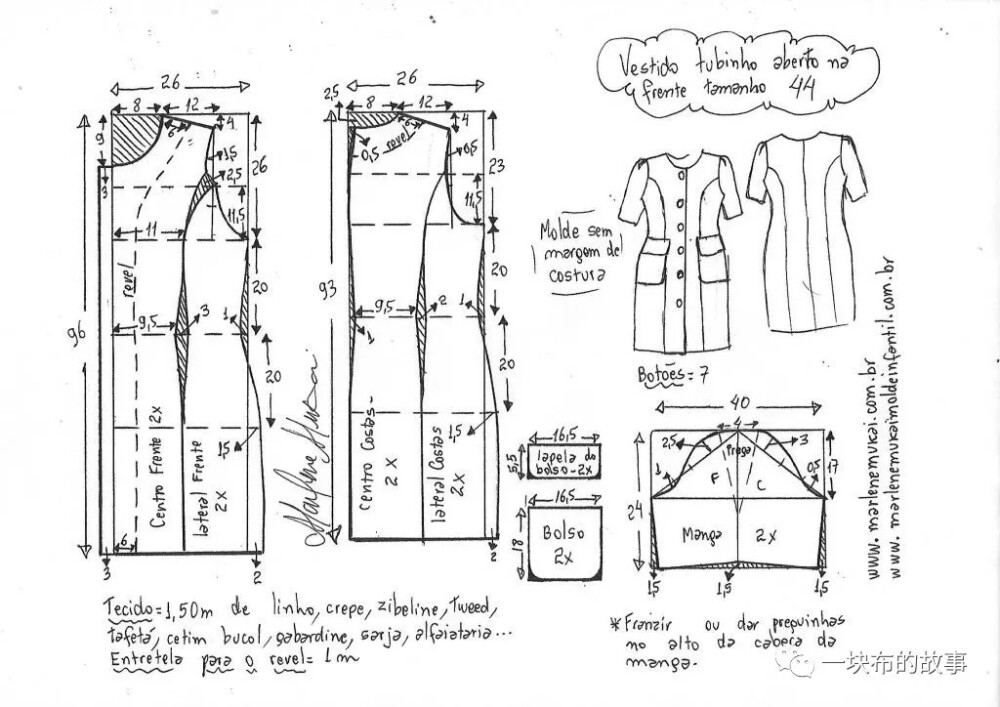 Vestido tubinho aberto na
frente tamanho 44
26
8 12
9
6
4
1,5
2,5
26
3
11,5
11
revel
20
9,5
3
1
96
20
Centro Frente 2x
lateral Frente
2x
15
6
3
2
26
2,5
8 12
6
4
0,5
revel
0,5
23
11,5
20
9,5
2
1
1
93
20
Centro Costas-
2x
lateral Costas
2x
1,5
2
Molde sem
margem de
costura
Botões = 7
16,5
5,5
lapela do
bolso-2x
16,5
18
Bolso
2x
40
4
2,5
Prega
3
1
F
C
0,5
17
24
Manga 2x
1,5
1,5
1,5
www.marlenemukai.com.br
www.marlenemukaimoldeinfantil.com.br
Tecido=1,50m de linho, crepe, zibeline, tweed,
tafetá, cetim bucol, gabardine, sarja, alfaiataria...
Entretela para o revel= 1m
*Franzir ou dar preguinhas
no alto da cabeça da
manga.
一块布的故事